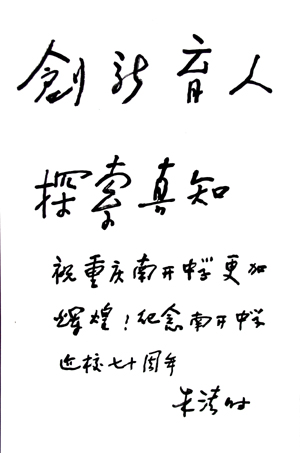 創新育人
探索真知
祝重庆南开中学更加
辉煌！纪念南开中学
迁校七十周年
朱清时